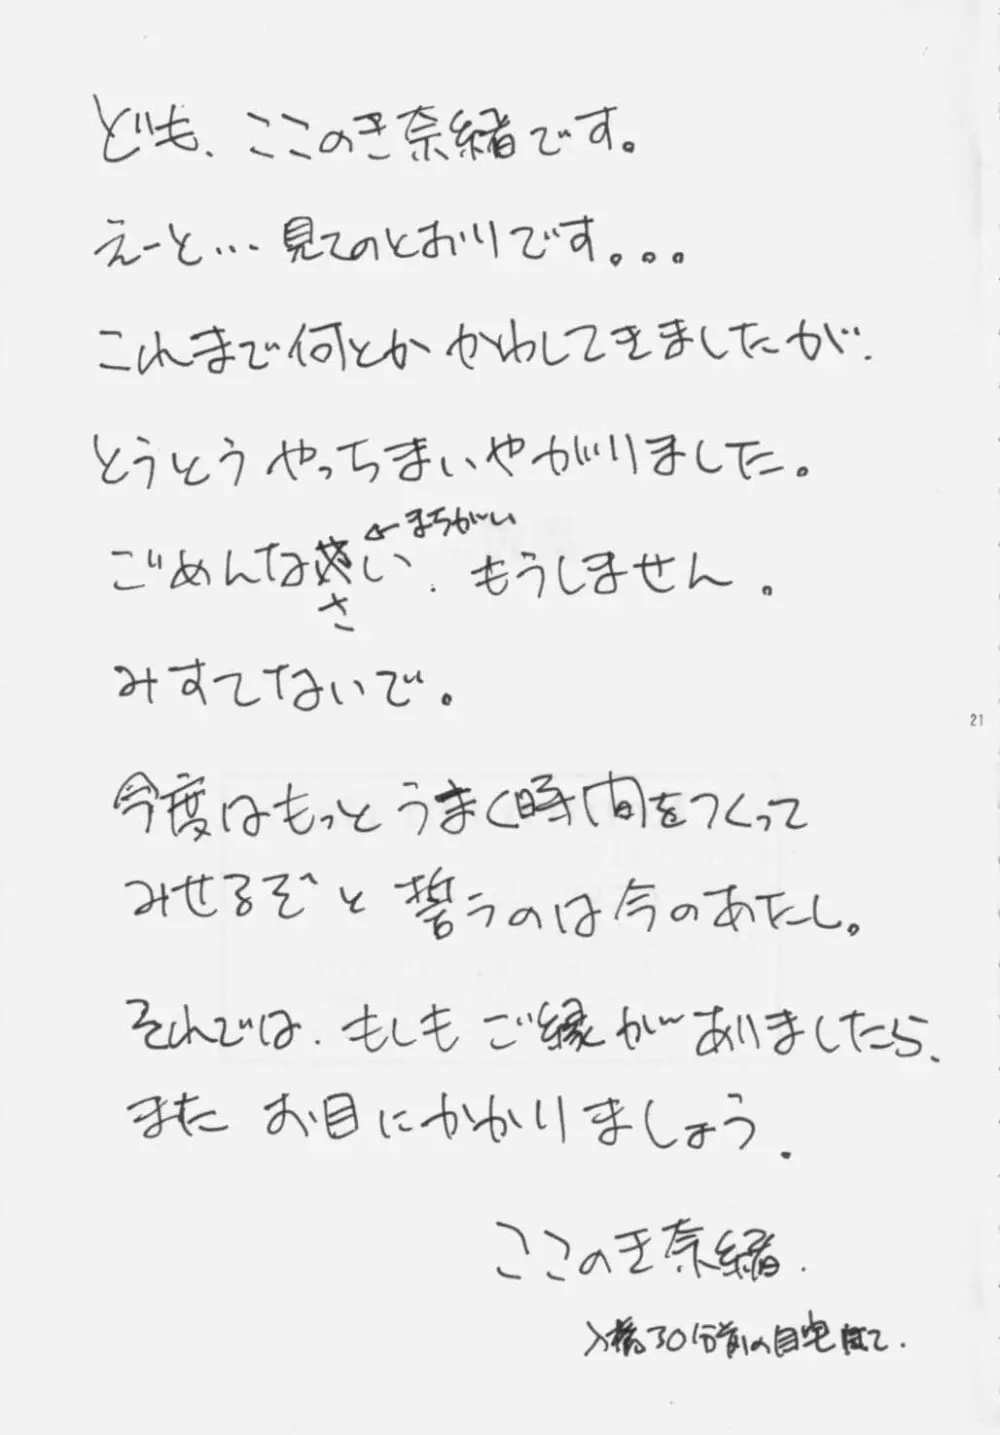 ども、ここのき奈緒です。
えーと…見てのとおりです。。。
これまで何とかかわしてきましたが、
とうとうやっちまいやがりました。
←まちがい
ごめんなさい、もうしません。
さ
みすてないで。
21
今度はもっとうまく時間をつくって
みせるぞと誓うのは今のあたし。
それでは、もしもご縁がありましたら、
またお目にかかりましょう。
ここのき奈緒.
入稿30分前の自宅にて.